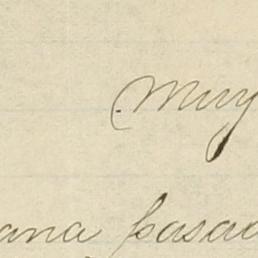 Muy
ana casad